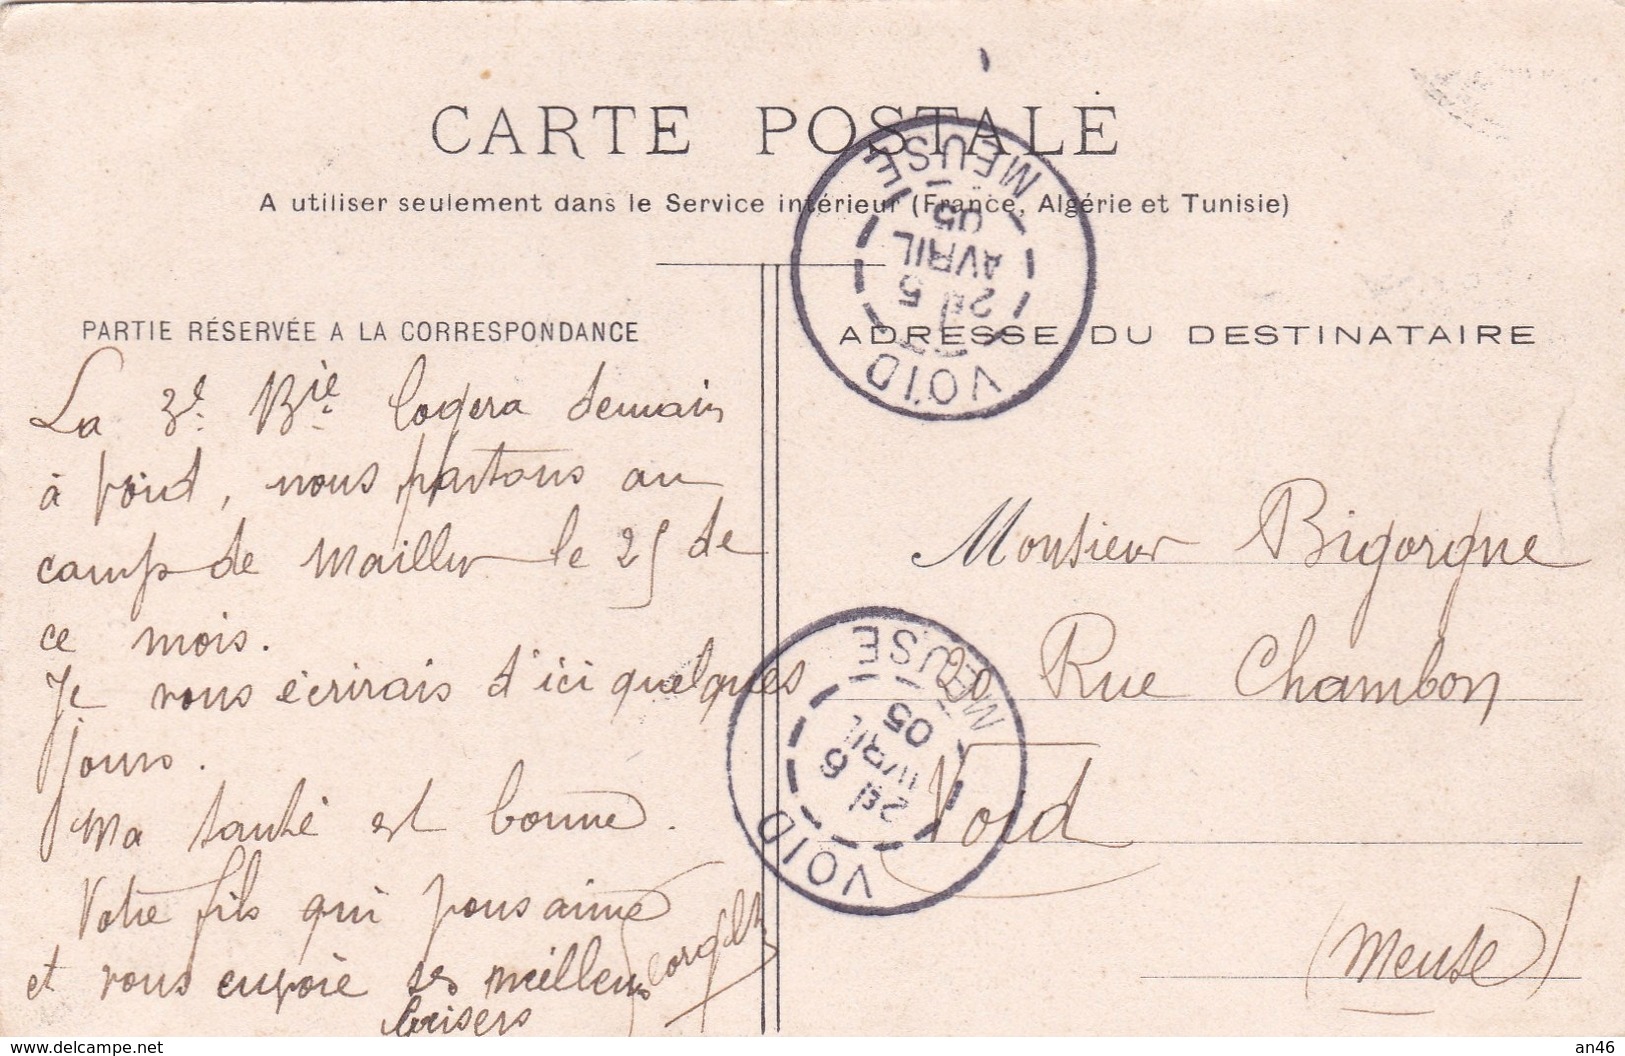 CARTE POSTALE
A utiliser seulement dans le Service intérieur (France, Algérie et Tunisie)
PARTIE RÉSERVÉE A LA CORRESPONDANCE
La 3e Bie logera demain
à Void, nous partons au
camp de Mailly le 25 de
ce mois.
Je vous écrirais d'ici quelques
jours.
Ma santé est bonne.
Votre fils qui vous aime
et vous envoie ses meilleurs
baisers
ADRESSE DU DESTINATAIRE
Monsieur Bigorgne
Rue Chambon
Void
(Meuse)
VOID MEUSE
2E 5
AVRIL
05
VOID MEUSE
2E 6
AVRIL
05
www.delcampe.net
an46